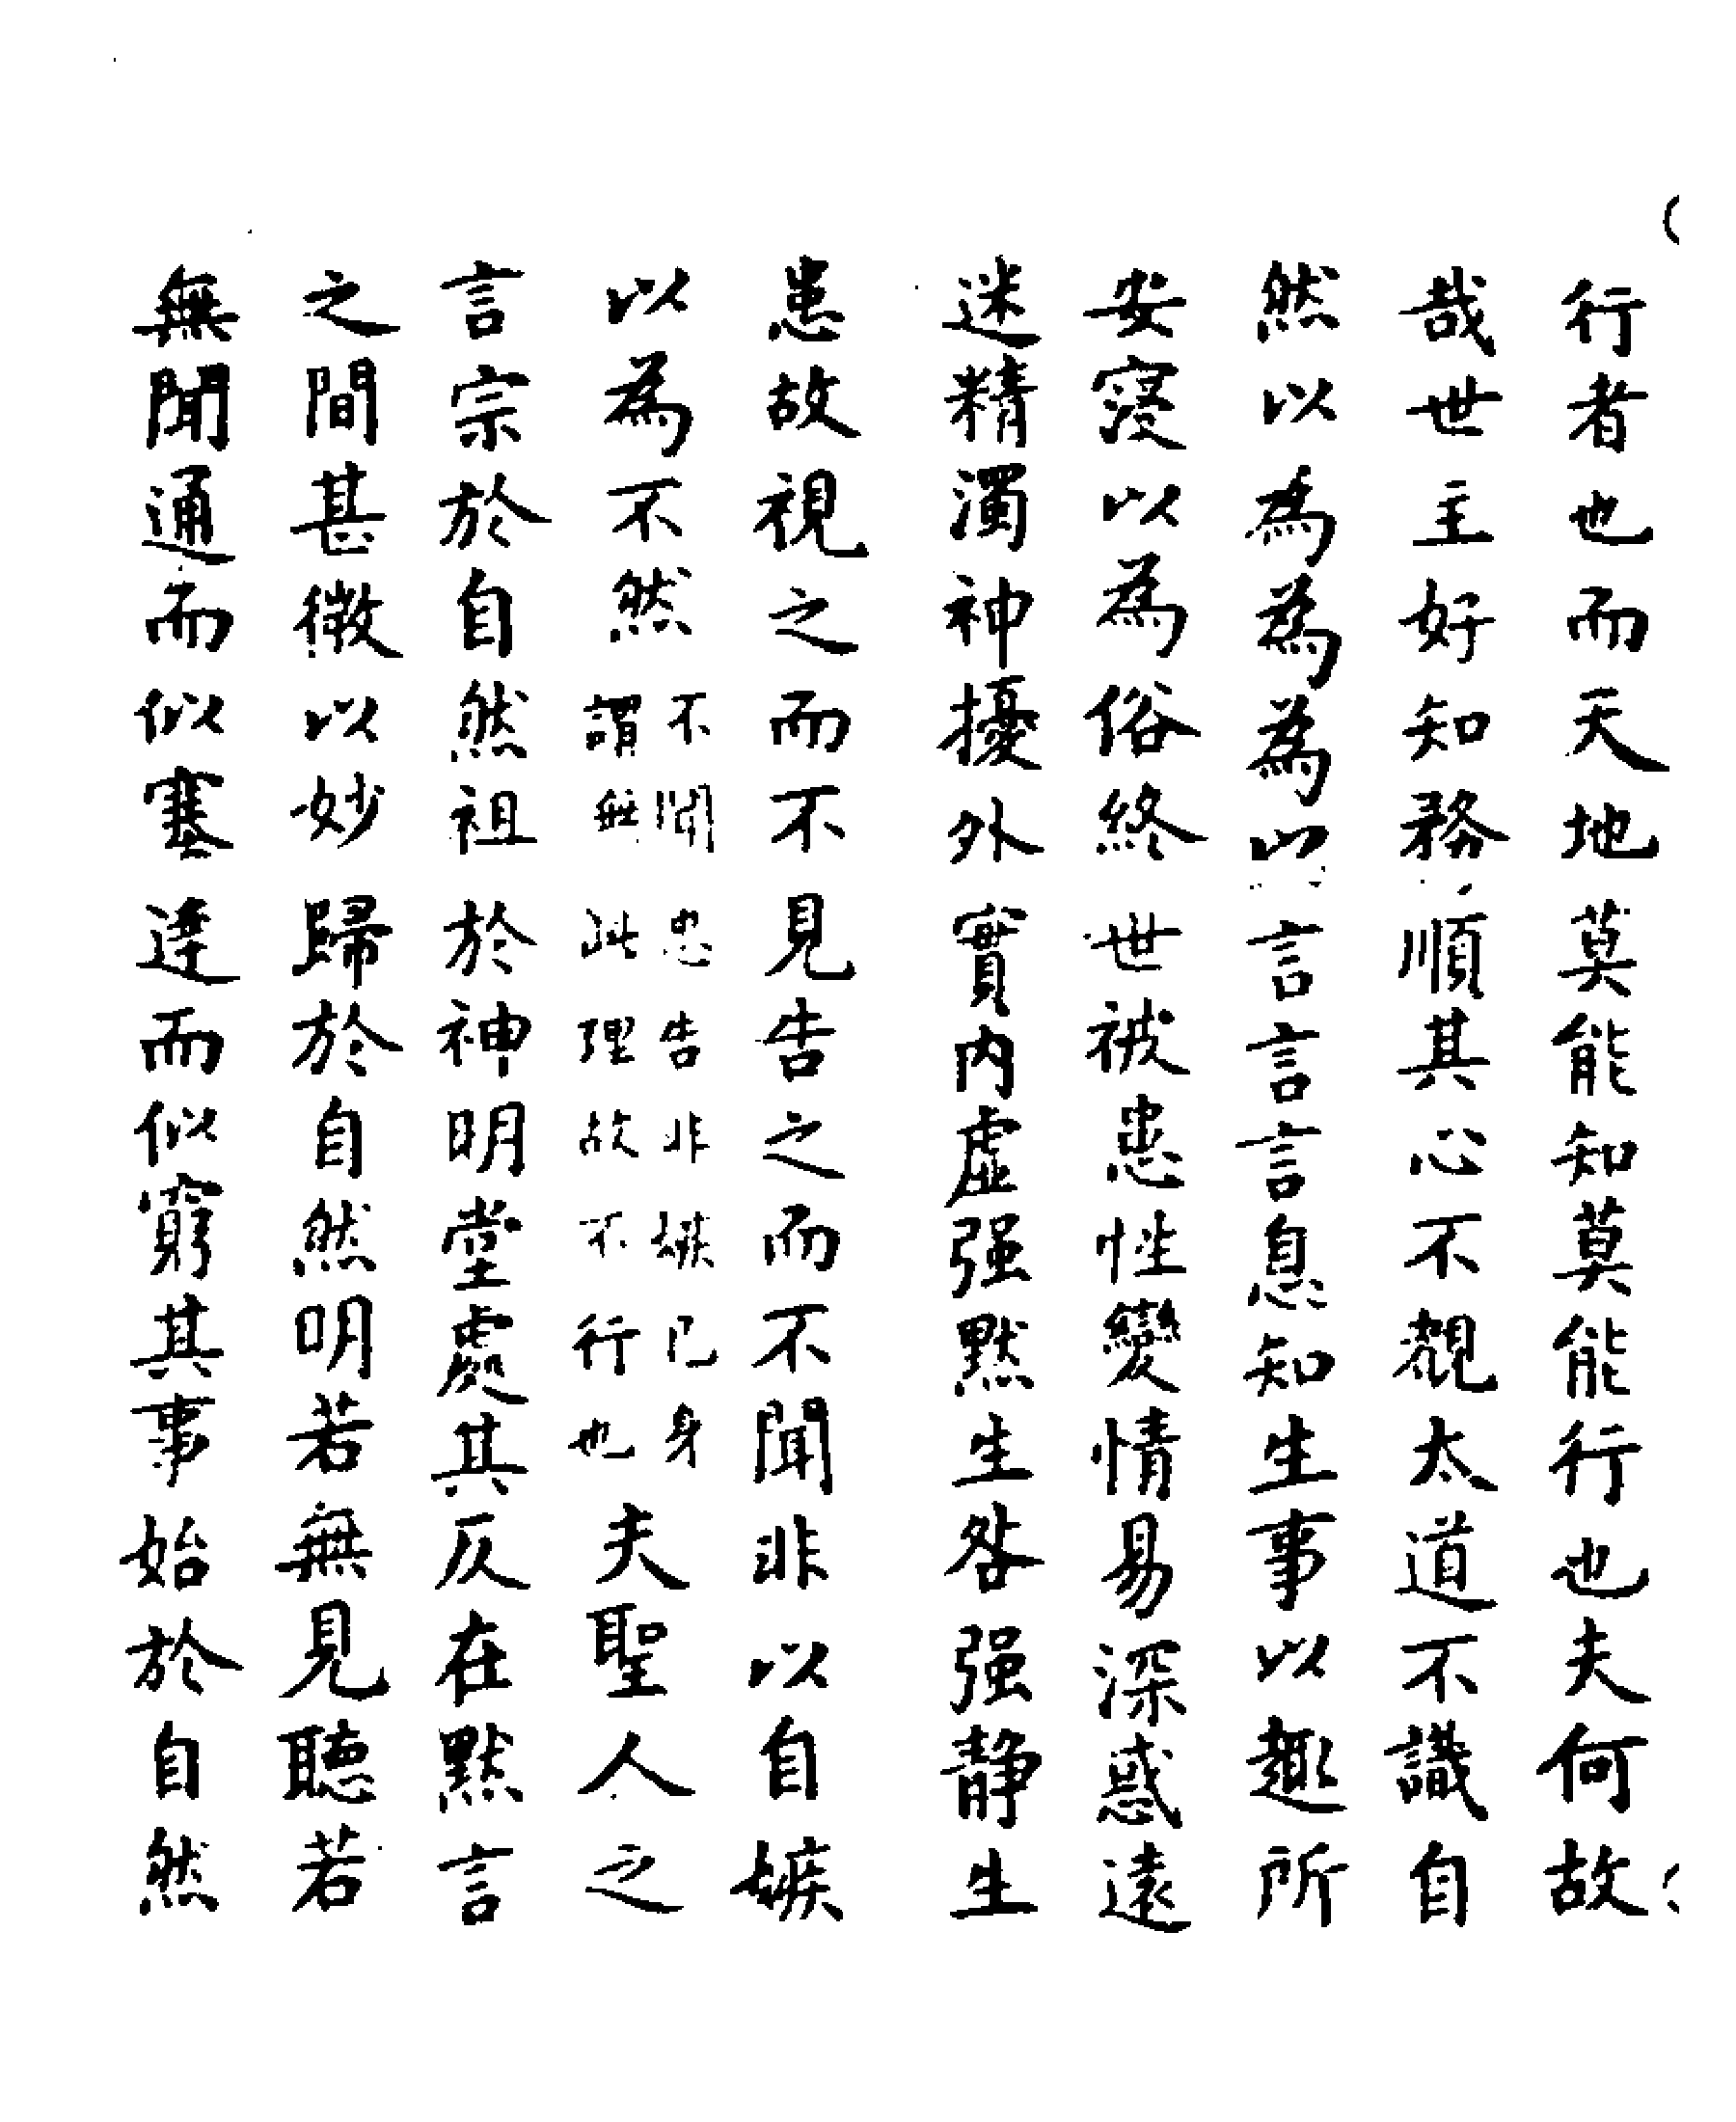 行者也而天地莫能知莫能行也夫何故
哉世主好知務順其心不覩太道不識自
然以為為為以言言言息知生事以趣所
安寑以為俗終世被患性變情易深惑遠
迷精濁神擾外實内虚强默生咎强静生
患故視之而不見告之而不聞非以自嫉
以為不然不聞忠告非嫉已身謂無此理故不行也夫聖人之
言宗於自然祖於神明堂處其仄在默言
之間甚微以妙歸於自然明若無見聽若
無聞通而似塞達而似窮其事始於自然